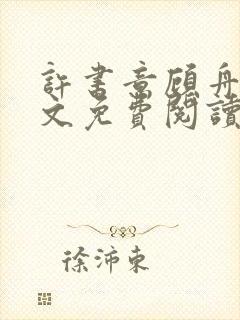 許書意顧舟
文免費閱讀
徐沛東